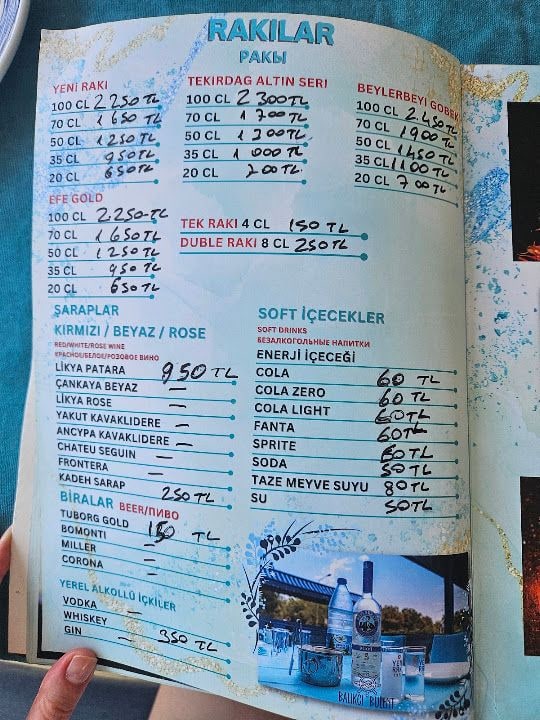 RAKILAR
РАКЫ
YENİ RAKI
100 CL 2250 TL
70 CL 1650 TL
50 CL 1250 TL
35 CL 950TL
20 CL 650TL
TEKIRDAG ALTIN SERI
100 CL 2300TL
70 CL 1700TL
50 CL 1300TL
35 CL 1000TL
20 CL 700TL
BEYLERBEYİ GOBEK
100 CL 2.450TL
70 CL 1900TL
50 CL 1450TL
35 CL 1100TL
20 CL 700TL
EFE GOLD
100 CL 2.250-TL
70 CL 1650TL
50 CL 1250TL
35 CL 950TL
20 CL 650TL
TEK RAKI 4 CL 150 TL
DUBLE RAKI 8 CL 250 TL
SARAPLAR
KIRMIZI / BEYAZ / ROSE
RED/WHITE/ROSE WINE
КРАСНОЕ/БЕЛОЕ/РОЗОВОЕ ВИНО
LİKYA PATARA 950 TL
ÇANKAYA BEYAZ —
LİKYA ROSE —
YAKUT KAVAKLIDERE —
ANCYPA KAVAKLIDERE —
CHATEU SEGUIN —
FRONTERA —
KADEH SARAP 250TL
BİRALAR BEER/ПИВО
TUBORG GOLD 150 TL
BOMONTI —
MILLER —
CORONA —
YEREL ALKOLLÜ İÇKİLER
VODKA —
WHISKEY
GIN — 350 TL
SOFT İÇECEKLER
SOFT DRINKS
БЕЗАЛКОГОЛЬНЫЕ НАПИТКИ
ENERJİ İÇECEĞİ
COLA 60 TL
COLA ZERO 60 TL
COLA LIGHT 60TL
FANTA 60TL
SPRITE 60TL
SODA 50TL
TAZE MEYVE SUYU 80TL
SU 50TL
BALIKÇI BÜLENT